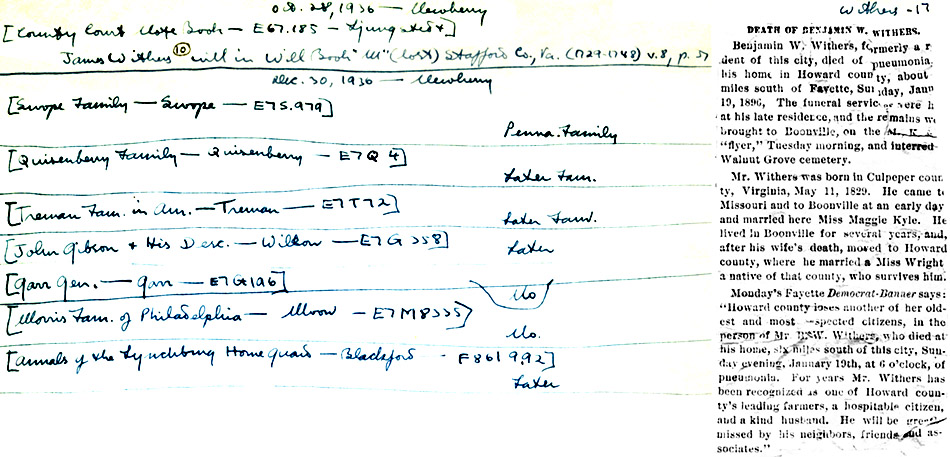 Oct. 28, 1936 — Newberry
[County Court Note Book — E67.185 —
James Withers (10) will in Will Book "M" (lost) Stafford Co., Va. (1729-1748) v.8, p. 37
Dec. 30, 1936 — Newberry
[Swope Family — Swope — E7S.979]
Penna. Family
[Quisenberry Family — Quisenberry — E7Q4]
Later Fam.
[Treman Fam. in Am. — Treman — E7T72]
Later Fam.
[John Gibson & His Desc. — Wilson — E7G358]
Later
[Garr Gen. — Garr — E7G196]
No
[Morris Fam. of Philadelphia — Moon — E7M8335]
No.
[Annals of the Lynchburg Home Guard — Blackford - F8619.92]
Later
Withers - 17
DEATH OF BENJAMIN W. WITHERS.
Benjamin W. Withers, formerly a r
dent of this city, died of pneumonia
his home in Howard county, about
miles south of Fayette, Sunday, Janu
19, 1896. The funeral services were h
at his late residence, and the remains we
brought to Boonville, on the M., K. &
"flyer," Tuesday morning, and interred
Walnut Grove cemetery.
Mr. Withers was born in Culpeper coun
ty, Virginia, May 11, 1829. He came to
Missouri and to Boonville at an early day
and married here Miss Maggie Kyle. He
lived in Boonville for several years, and,
after his wife's death, moved to Howard
county, where he married a Miss Wright
a native of that county, who survives him.
Monday's Fayette Democrat-Banner says:
"Howard county loses another of her old-
est and most respected citizens, in the
person of Mr. B. W. Withers, who died at
his home, six miles south of this city, Sun-
day evening, January 19th, at 6 o'clock, of
pneumonia. For years Mr. Withers has
been recognized as one of Howard coun-
ty's leading farmers, a hospitable citizen,
and a kind husband. He will be greatly
missed by his neighbors, friends and as-
sociates."